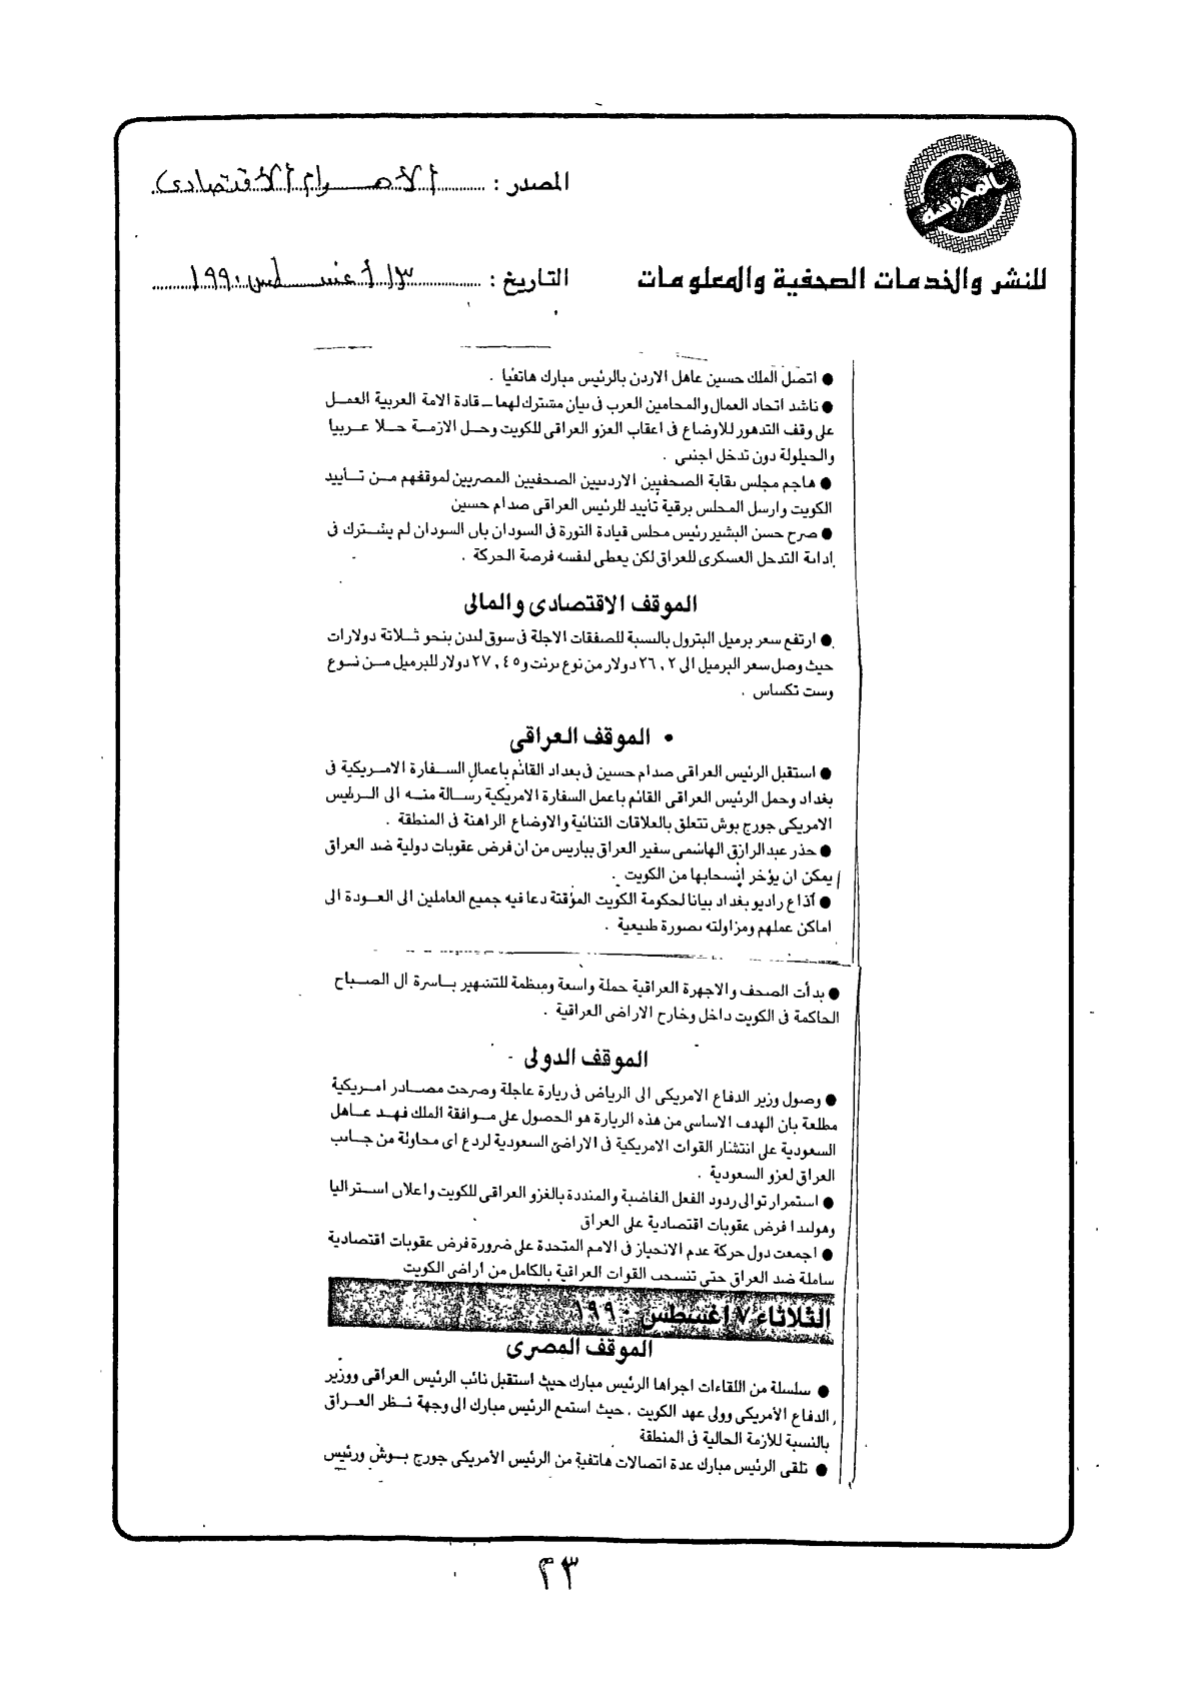 المحروسة
المصدر : الأهرام الأقتصادى
للنشر والخدمات الصحفية والمعلومات
التاريخ : ١٣ أغسطس ١٩٩٠
● اتصل الملك حسين عاهل الاردن بالرئيس مبارك هاتفيا .
● ناشد اتحاد العمال والمحامين العرب فى بيان مشترك لهما ـ قادة الامة العربية العمل
على وقف التدهور للاوضاع فى اعقاب الغزو العراقى للكويت وحل الازمة حلا عربيا
والحيلولة دون تدخل اجنبى .
● هاجم مجلس نقابة الصحفيين الاردنيين الصحفيين المصريين لموقفهم من تأييد
الكويت وارسل المجلس برقية تأييد للرئيس العراقى صدام حسين
● صرح حسن البشير رئيس مجلس قيادة الثورة فى السودان بان السودان لم يشترك فى
إدانة التدخل العسكرى للعراق لكن يعطى لنفسه فرصة الحركة .
الموقف الاقتصادى والمالى
● ارتفع سعر برميل البترول بالنسبة للصفقات الاجلة فى سوق لندن بنحو ثلاثة دولارات
حيث وصل سعر البرميل الى ٢٦,٢ دولار من نوع برنت و٢٧,٤٥ دولار للبرميل من نوع
وست تكساس .
• الموقف العراقى
● استقبل الرئيس العراقى صدام حسين فى بغداد القائم باعمال السفارة الامريكية فى
بغداد وحمل الرئيس العراقى القائم باعمل السفارة الامريكية رسالة منه الى الرئيس
الامريكى جورج بوش تتعلق بالعلاقات الثنائية والاوضاع الراهنة فى المنطقة .
● حذر عبد الرازق الهاشمى سفير العراق بباريس من ان فرض عقوبات دولية ضد العراق
يمكن ان يؤخر إنسحابها من الكويت .
● أذاع راديو بغداد بيانا لحكومة الكويت المؤقتة دعا فيه جميع العاملين الى العودة الى
اماكن عملهم ومزاولته بصورة طبيعية .
● بدأت الصحف والاجهرة العراقية حملة واسعة ومنظمة للتشهير باسرة ال الصباح
الحاكمة فى الكويت داخل وخارج الاراضى العراقية .
الموقف الدولى
● وصول وزير الدفاع الامريكى الى الرياض فى زيارة عاجلة وصرحت مصادر امريكية
مطلعة بان الهدف الاساسى من هذه الزيارة هو الحصول على موافقة الملك فهد عاهل
السعودية على انتشار القوات الامريكية فى الاراضى السعودية لردع اى محاولة من جانب
العراق لغزو السعودية .
● استمرار توالى ردود الفعل الغاضبة والمنددة بالغزو العراقى للكويت واعلان استراليا
وهولندا فرض عقوبات اقتصادية على العراق
● اجمعت دول حركة عدم الانحياز فى الامم المتحدة على ضرورة فرض عقوبات اقتصادية
شاملة ضد العراق حتى تنسحب القوات العراقية بالكامل من اراضى الكويت
الثلاثاء ٧ اغسطس ١٩٩٠
الموقف المصرى
● سلسلة من اللقاءات اجراها الرئيس مبارك حيث استقبل نائب الرئيس العراقى ووزير
الدفاع الأمريكى وولى عهد الكويت . حيث استمع الرئيس مبارك الى وجهة نظر العراق
بالنسبة للأزمة الحالية فى المنطقة
● تلقى الرئيس مبارك عدة اتصالات هاتفية من الرئيس الأمريكى جورج بوش ورئيس
٢٣